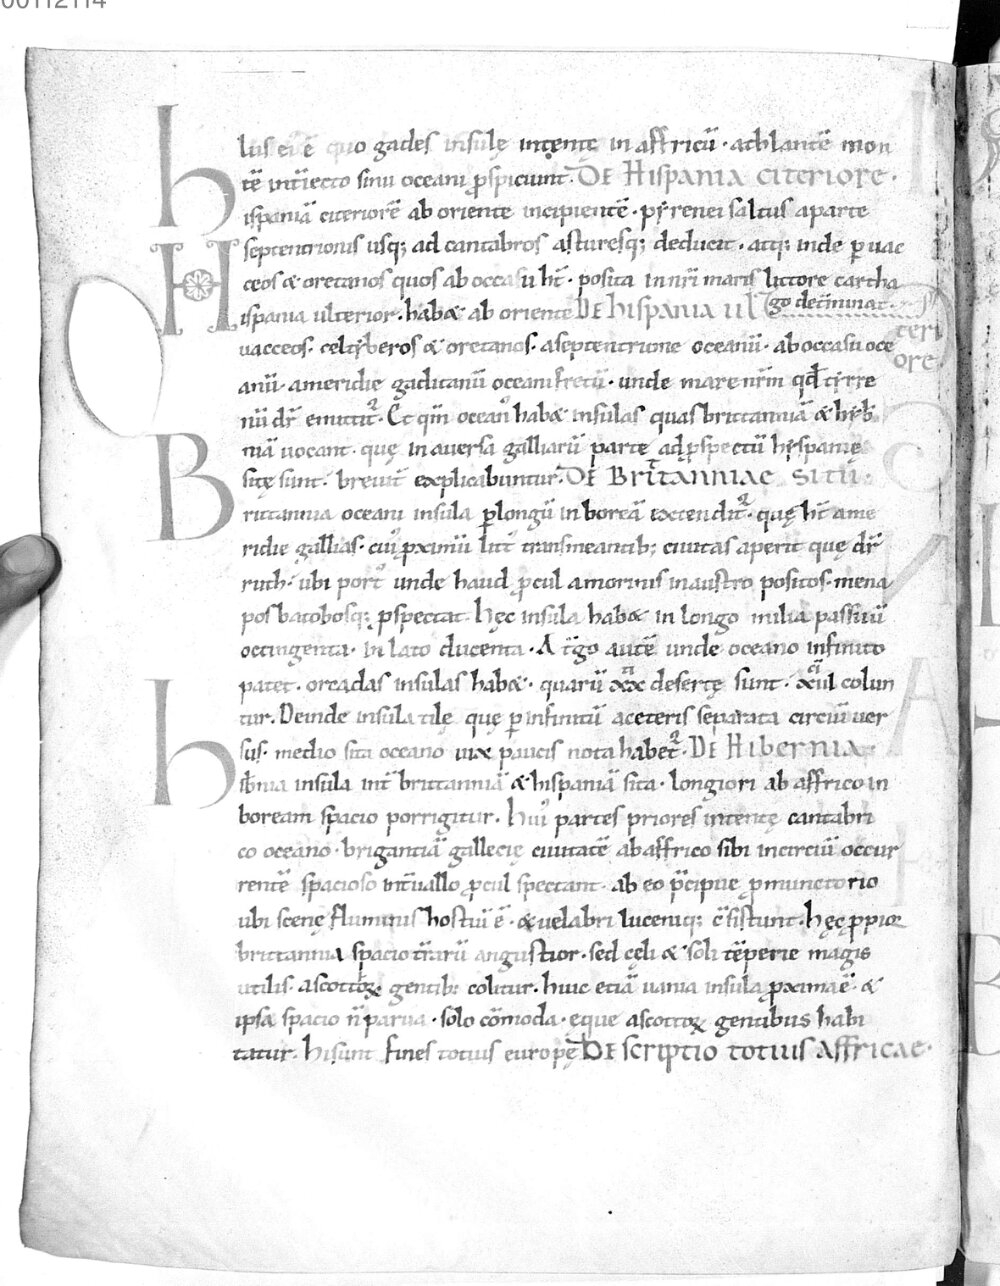 00112114
lus ei ē quo gades insulę intentę in affricū · athlantē mon
tē int̄iecto sinu oceani ꝓspiciunt · DE Hispania citeriore ·
Hispaniā citeriorē ab oriente incipientē · pẏrenei saltus a parte
septentrionis usq; ad cantabros asturesq; deducit · atq; inde ꝑ uac
ceos & oretanos quos ab occasu ht̄ · posita in nr̄i maris littore cartha
go det̄minat ·
Hispania ulterior · habet ab oriente DE hispania ul
teri
ore
uacceos · celtẏberos & oretanos · a septentrione oceanū · ab occasu oce
anū · a meridie gaditanū oceani fretū · unde mare nr̄m qd̄ tẏrre
nū dr̄ emittit᷑ · Et qm̄ ocean᷒ habet insulas quas brittanniā & hẏb̄
niā uocant · quę in auersa galliarū parte ad ꝓspectū hẏspanię
sitę sunt · breuit̄ explicabuntur · DE Britanniae sitū ·
Brittannia oceani insula ꝑ longū in boreā extendit᷑ · quę ht̄ a me
ridie gallias · cui᷒ ꝓximū lit᷒ transmeantib; ciuitas aperit quę dr̄
ruth · ubi port᷒ unde haud ꝓcul a morinis in austro positos · mena
pos batobosq; ꝓspectat · hęc insula habet in longo milia passuū
octingenta · in lato ducenta · A t̄go autē unde oceano infinito
patet · orcadas insulas habet · quarū xx desertę sunt · xiii colun
tur. Deinde insula tile quę ꝑ infinitū a ceteris separata circiū uer
sus · medio sita oceano uix paucis nota habet᷑ · DE Hibernia
hib̄nia insula int̄ brittanniā & hispaniā sita · longiori ab affrico in
boream spacio porrigitur · hui᷒ partes priores intentę cantabri
co oceano · brigantiā gallecię ciuitatē ab affrico sibi in circiū occur
rentē spacioso int̄uallo ꝓcul spectant · ab eo p̄cipue ꝓmunctorio
ubi scenę fluminis hostiū ē · & uelabri luceniq; c̄sistunt · hęc ꝓpior
brittannia spacio t̄rarū angustior · sed cęli & soli tēperie magis
utilis · a scottoꝝ gentib; colitur · huic etiā uania insula ꝓxima ē · &
ipsa spacio n̄ parua · solo cōmoda · eque a scottoꝝ gentibus habi
tatur · hi sunt fines totius europę DE scriptio totius Affricae ·